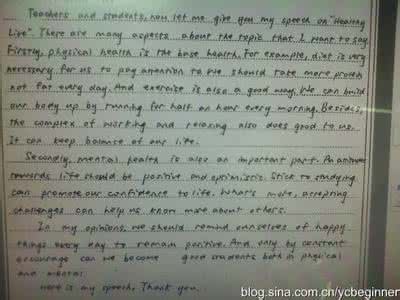 Teachers and students, now let me give you my speech on "Healthy
Life". There are many aspects about the topic that I want to say.
Firstly, physical health is the base health. For example, diet is very
necessary for us to pay attention to. We should take more protein
not fat every day. And exercise is also a good way. We can build
our body up by running for half an hour every morning. Besides,
the complex of working and relaxing also does good to us.
It can keep balance of our life.
Secondly, mental health is also an important part. An
towards life should be positive and optimistic. Stick to studying
can promote our confidence to life. What's more, accepting
challenges can help us know more about others.
In my opinions, we should remind ourselves of happy
things every day to remain positive. And, only by constant
encourage can we become good students both in physical
and mental.
Here is my speech. Thank you.
blog.sina.com.cn/ycbeginner